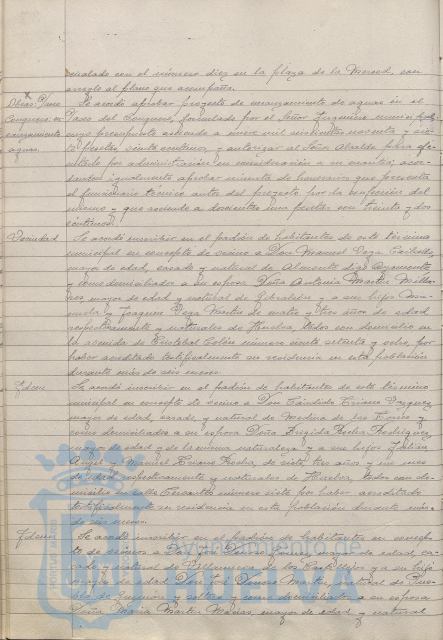 señalado con el número diez en la plaza de la Merced, con
arreglo al plano que acompaña.
Obras: Paseo
Congreso: en-
cauzamiento
aguas.
Se acordó aprobar proyecto de encauzamiento de aguas en el
Paseo del Congreso, formulado por el Señor Ingeniero municipal,
cuyo presupuesto asciende a nueve mil seiscientas noventa y
pesetas, céntimos, y autorizar al Señor Alcalde para efec-
tuarlo por administración en consideración a su cuantía; acor-
dándose igualmente aprobar minuta de honorarios que presenta
el funcionario técnico autor del proyecto por la confección del
mismo y que asciende a doscientas una pesetas con treinta y dos
céntimos.
Vecindad
Se acordó inscribir en el padrón de habitantes de este término
municipal en concepto de vecino a Don Manuel Vega
mayor de edad, casado y natural de Almonte
y como domiciliados a su esposa Doña Antonia Martín
mayor de edad y natural de Gibraleón y a sus hijos Ma-
nuela y Joaquín Vega Martín de siete y tres años de edad
respectivamente y naturales de Huelva, todos con domicilio en
la avenida de Cristóbal Colón número ciento setenta y ocho, por
haber acreditado testificalmente su residencia en esta población
durante más de seis meses.
Idem
Se acordó inscribir en el padrón de habitantes de este término
municipal en concepto de vecino a Don Cándido Triano Vázquez,
mayor de edad, casado y natural de Medina de las Torres y
como domiciliados a su esposa Doña Brígida Rocha Rodríguez,
mayor de edad y de la misma naturaleza y a sus hijos Julián
Angel y Manuel Triano Rocha, de siete, tres años y un mes
de edad respectivamente y naturales de Huelva, todos con do-
micilio en calle Cervantes número siete por haber acreditado
testificalmente su residencia en esta población durante más
de seis meses.
Idem
Se acordó inscribir en el padrón de habitantes en concep-
to de vecinos a Don mayor de edad, ca-
sado y natural de Villanueva de los Castillejos y a su hijo
mayor de edad Don José Martín, natural de Pue-
bla de Guzmán y soltero y como domiciliados a su esposa
Doña María Martín Macías, mayor de edad y natural
Ayuntamiento de
HUELVA